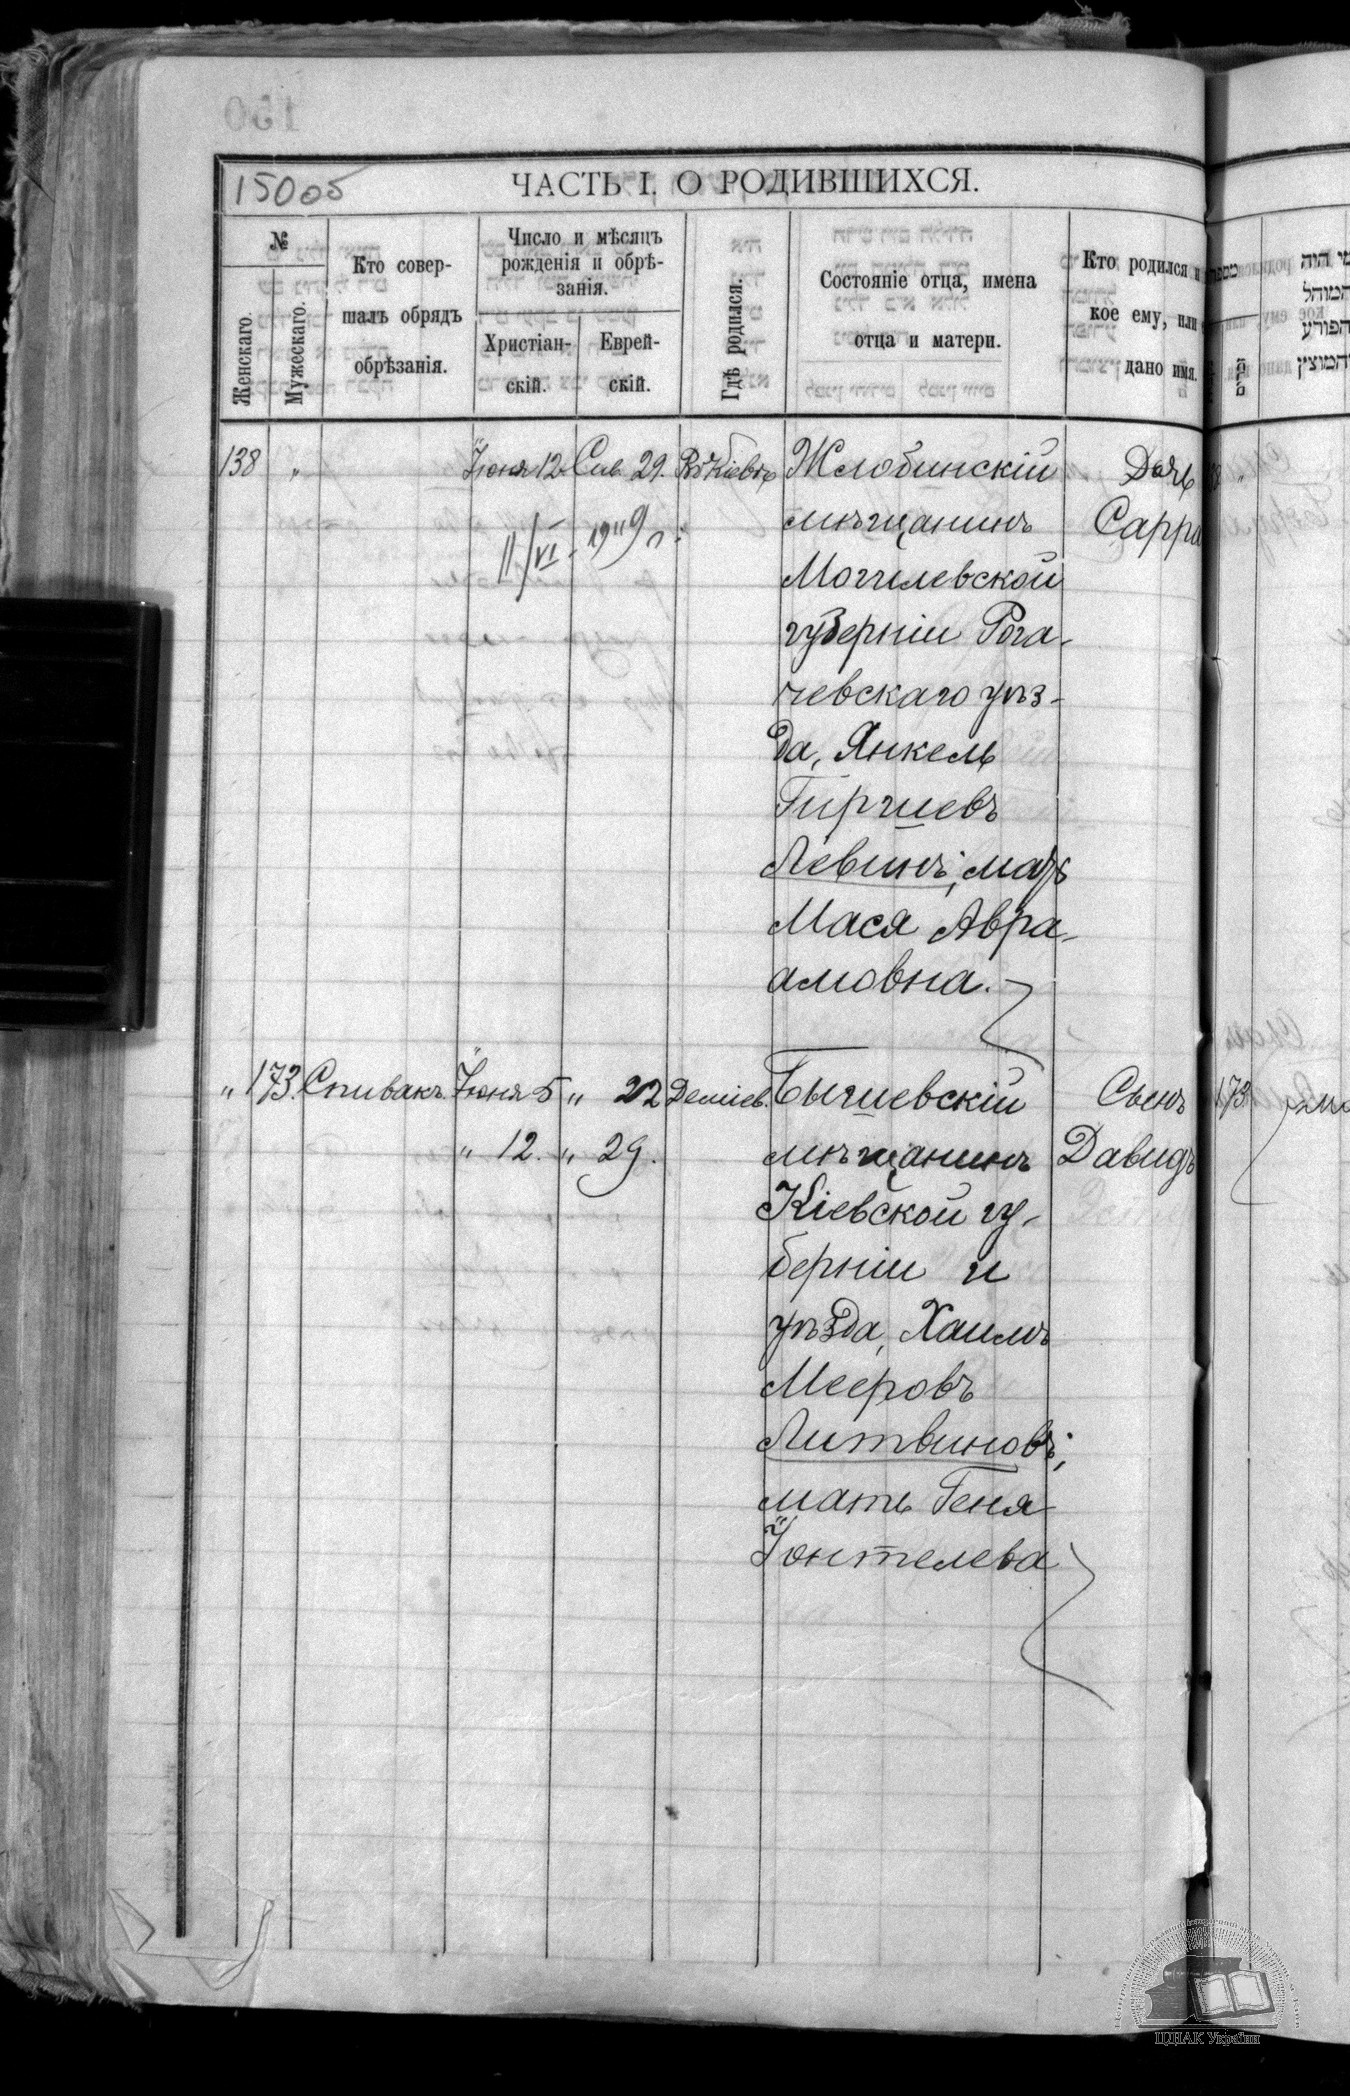 150об
ЧАСТЬ I. О РОДИВШИХСЯ.
№
Женскаго.
Мужескаго.
Кто совер-
шалъ обрядъ
обрѣзанія.
Число и мѣсяцъ
рожденія и обрѣ-
занія.
Христіан-
скій.
Еврей-
скій.
Гдѣ родился.
Состояніе отца, имена
отца и матери.
Кто родился и
кое ему, или
дано имя.
138 " Іюня 12 Сив. 29. Въ Кіевѣ Жлобинскій Дочь
11/VI 19"9 г. мѣщанинъ Сарра
Могилевской
губерніи Рога-
чевскаго уѣз-
да, Янкель
Гиршевъ
Левинъ; мать
Мася Авра-
амовна.
" 173. Спивакъ. Іюня 5 " 22 Деміев. Бышевскій Сынъ 173
" 12. " 29. мѣщанинъ Давидъ
Кіевской гу-
берніи и
уѣзда, Хаимъ
Мееровъ
Литвиновъ;
мать Геня
Іонтелева
המוהל
הפורע
והמוצץ
ЦДІАК України